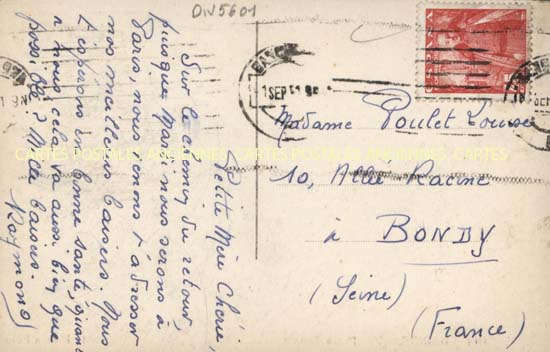 DIV5601
Petite Mère Chérie,
Sur le chemin du retour,
puisque Mardi nous serons à
Paris, nous tenons à t'adresser
nos meilleurs baisers. Nous
t'espérons en bonne santé, quant
à nous cela va aussi bien que
possible. Mille baisers.
Raymond
1 SEP
Madame Poulet Louise
10, Allée Racine
à BONDY
(Seine)
(France)
CARTES POSTALES ANCIENNES CARTES POSTALES ANCIENNES CARTES